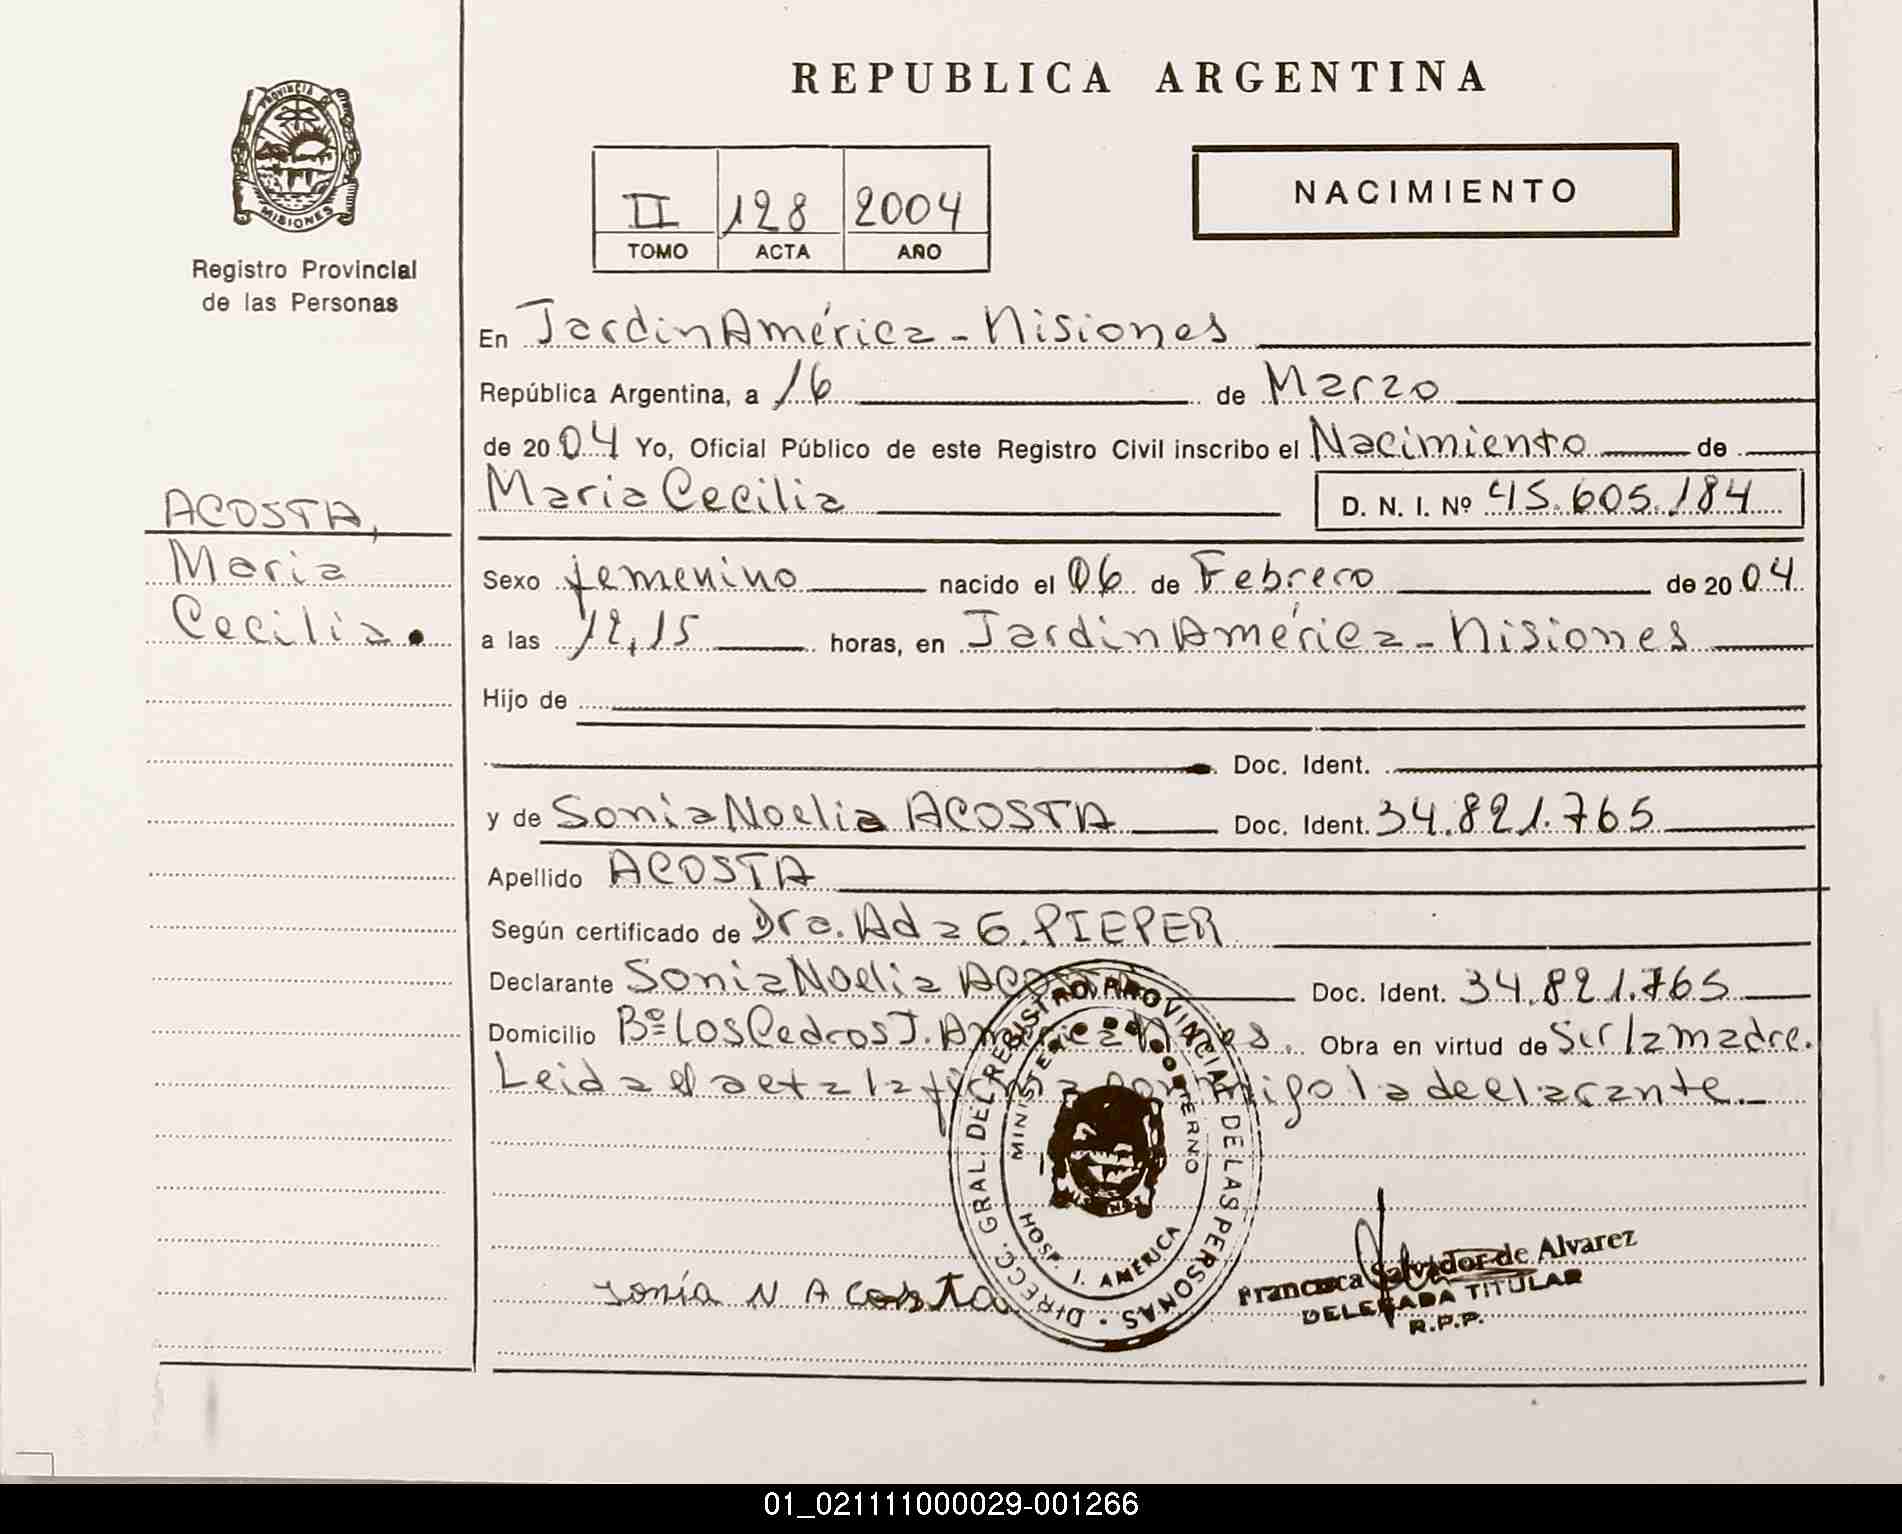 REPUBLICA ARGENTINA
PROVINCIA DE
MISIONES
Registro Provincial
de las Personas
II 128 2004
TOMO ACTA AÑO
NACIMIENTO
En Jardin América - Misiones
República Argentina, a 16 de Marzo
de 2004 Yo, Oficial Público de este Registro Civil inscribo el Nacimiento de
Maria Cecilia D. N. I. Nº 45.605.184
ACOSTA,
Maria
Cecilia.
Sexo femenino nacido el 06 de Febrero de 2004
a las 12,15 horas, en Jardin América - Misiones
Hijo de
Doc. Ident.
y de Sonia Noelia ACOSTA Doc. Ident. 34.821.765
Apellido ACOSTA
Según certificado de Dra. Ada G. PIEPER
Declarante Sonia Noelia ACOSTA Doc. Ident. 34.821.765
Domicilio Bº Los Cedros J. América Mnes. Obra en virtud de Ser la madre.
Leida el acta la firma conmigo la declarante.
DIRECC. GRAL. DEL REGISTRO PROVINCIAL DE LAS PERSONAS
MINISTERIO DE GOBIERNO
HOSP. J. AMERICA
Sonia N Acosta
Francisca Salvador de Alvarez
DELEGADA TITULAR
R.P.P.
01_021111000029-001266